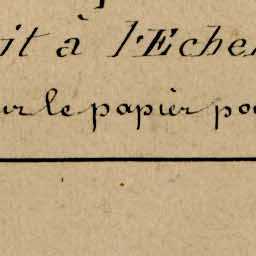 it à l'Eche
ur le papier po